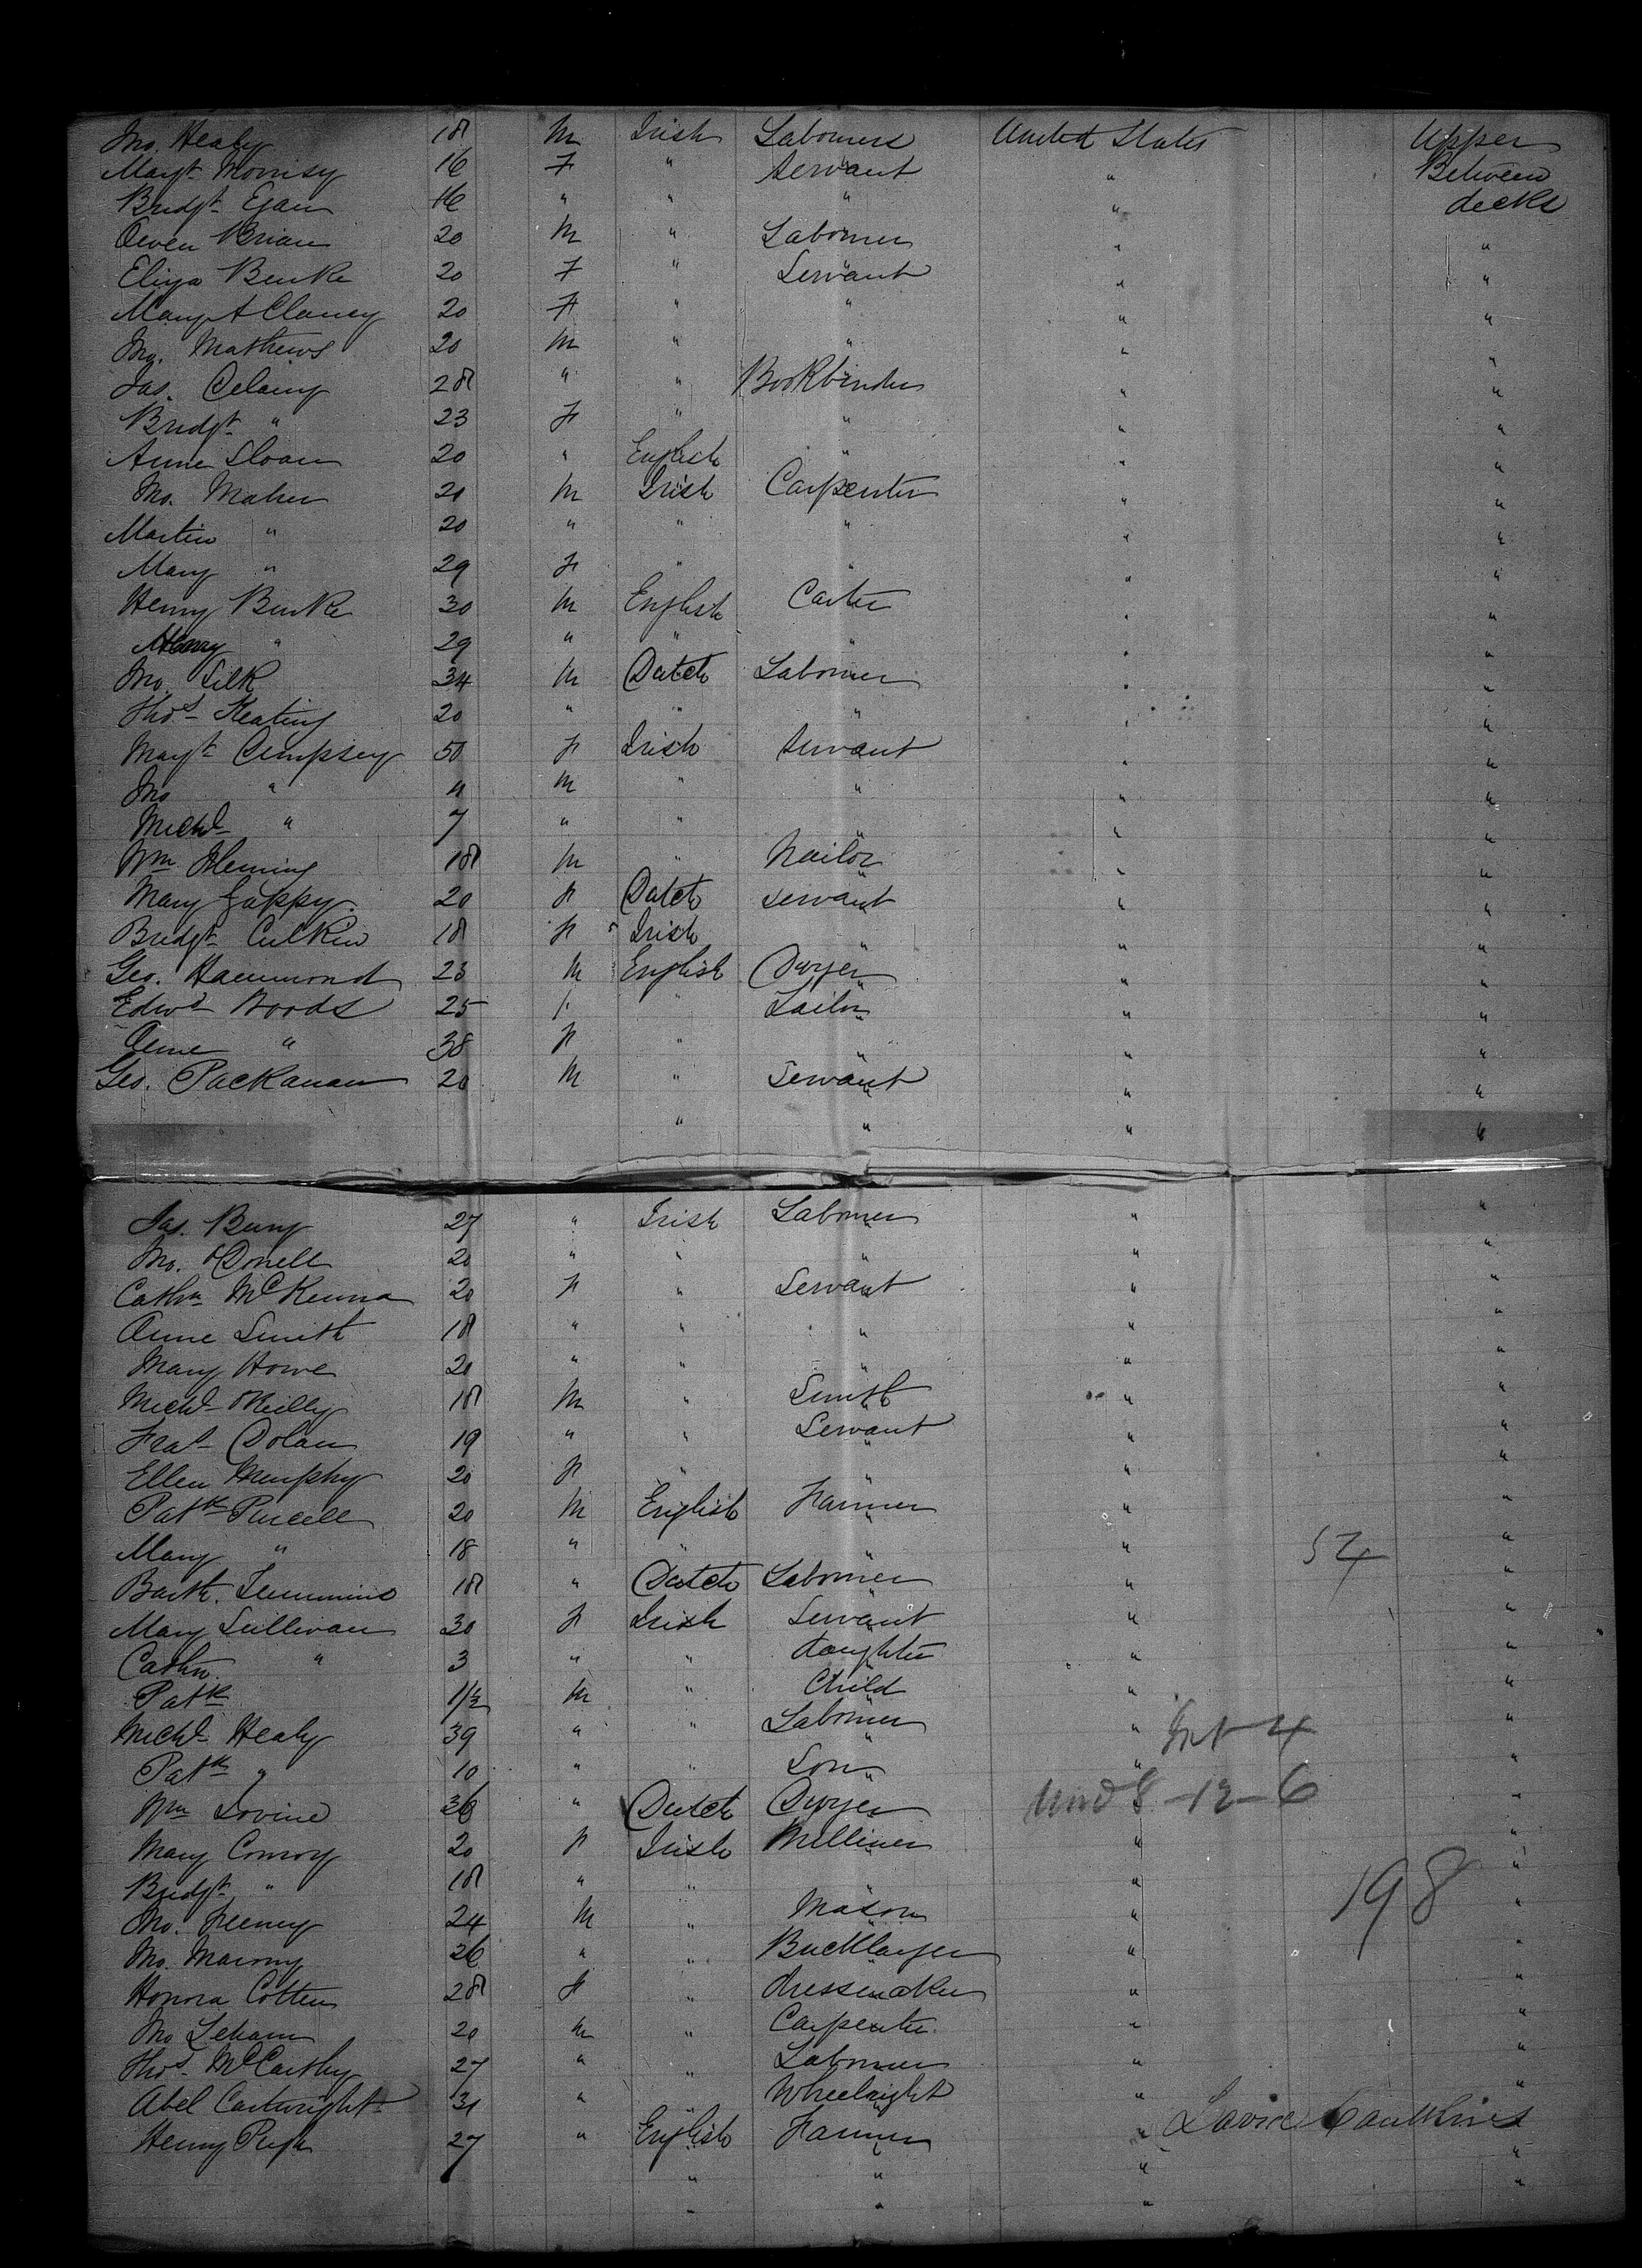 Jno. Healy 18 M Irish Labourers United States Upper
Margt. Morrisy 16 F " Servant " Between
Bridgt. Egan 16 " " " " decks
Owen Brian 20 M " Labourer " "
Eliza Burke 20 F " Servant " "
Margt Clancy 20 F " " " "
Jno. Mathews 20 M " " " "
Jas. Delany 28 " " Bookbinder " "
Bridgt. " 23 F " " " "
Anne Sloan 20 " English " " "
Jno. Maher 21 M Irish Carpenter " "
Martin " 20 " " " " "
Mary " 29 F " " " "
Henry Burke 30 M English Carter " "
" 29 " " " " "
Jno. Silk 34 M Dutch Labourer " "
Thos. Keating 20 " " " " "
Margt. Dempsey 50 F Irish Servant " "
Jno " 11 M " " " "
Michl. " 7 " " " " "
Wm Fleming 18 M " Nailor " "
Mary Gappy. 20 F Dutch servant " "
Bridgt. Culkin 18 F Irish " " "
Geo. Hammond 23 M English Dwyer " "
Edwd Woods 25 " Sailor " "
Anne " 38 F " " " "
Geo. Packanan 20 M " Servant " "
" " " "
Jas. Burny 27 " Irish Labourer " "
Jno. O'Donell 20 " " " " "
Cathn. McKenna 20 F " Servant " "
Anne Smith 18 " " " " "
Mary Howe 20 " " " " "
Michl. OReilly 18 M " Smith " "
Frat Dolan 19 " " Servant " "
Ellen Murphy 20 F " " " "
Patk. Purcell 20 M English Farmer " "
Mary " 18 " " " " 54 "
Barth. 18 " Dutch Labourer " "
Mary Sullivan 30 F Irish Servant " "
Cathn. " 3 " " daughter " "
Patk 1½ M " Child " "
Michl. Healy 39 " " Labourer " Inf 4 "
Patk " 10 " " Son " "
Wm Lovine 36 " Dutch Dwyer Und 8 - 12 - 6 "
Mary Conroy 20 F Irish Milliner " "
Bridgt. " 18 " " " " 198 "
Jno. Feeney 24 M " Mason " "
Jno. Marony 26 " " Bricklayer " "
Honora Cotten 28 F " dressmaker " "
Jno Leham 20 M " Carpenter " "
Thos. McCarthy 27 " " Labourer " "
Abel Cartwright 31 " " Wheelright " "
Henry Pugh 27 " English Farmer "
" " " "
" " " "